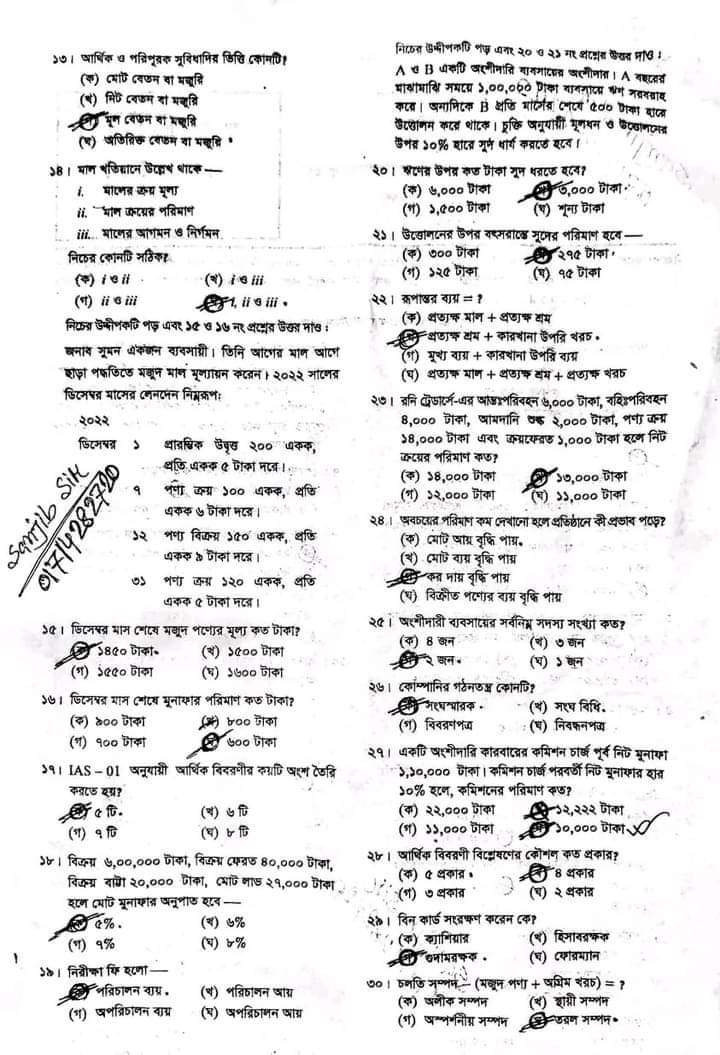 ১৩। আর্থিক ও পরিপূরক সুবিধাদির ভিত্তি কোনটি?
(ক) মোট বেতন বা মজুরি
(খ) নিট বেতন বা মজুরি
মূল বেতন বা মজুরি
(ঘ) অতিরিক্ত বেতন বা মজুরি
১৪। মাল খতিয়ানে উল্লেখ থাকে —
i. মালের ক্রয় মূল্য
ii. মাল ক্রয়ের পরিমাণ
iii. মালের আগমন ও নির্গমন
নিচের কোনটি সঠিক?
(ক) i ও ii (খ) i ও iii
(গ) ii ও iii i, ii ও iii
নিচের উদ্দীপকটি পড় এবং ১৫ ও ১৬ নং প্রশ্নের উত্তর দাও :
জনাব সুমন একজন ব্যবসায়ী। তিনি আগের মাল আগে
ছাড়া পদ্ধতিতে মজুদ মাল মূল্যায়ন করেন। ২০২২ সালের
ডিসেম্বর মাসের লেনদেন নিম্নরূপ:
২০২২
ডিসেম্বর ১ প্রারম্ভিক উদ্বৃত্ত ২০০ একক,
প্রতি একক ৫ টাকা দরে।
৭ পণ্য ক্রয় ১০০ একক, প্রতি
একক ৬ টাকা দরে।
১২ পণ্য বিক্রয় ১৫০ একক, প্রতি
একক ৯ টাকা দরে।
৩১ পণ্য ক্রয় ১২০ একক, প্রতি
একক ৫ টাকা দরে।
Sanjib Sir
01714282720
১৫। ডিসেম্বর মাস শেষে মজুদ পণ্যের মূল্য কত টাকা?
১৪৫০ টাকা (খ) ১৫০০ টাকা
(গ) ১৫৫০ টাকা (ঘ) ১৬০০ টাকা
১৬। ডিসেম্বর মাস শেষে মুনাফার পরিমাণ কত টাকা?
(ক) ৯০০ টাকা ৮০০ টাকা
(গ) ৭০০ টাকা ৬০০ টাকা
১৭। IAS – 01 অনুযায়ী আর্থিক বিবরণীর কয়টি অংশ তৈরি
করতে হয়?
৫ টি (খ) ৬ টি
(গ) ৭ টি (ঘ) ৮ টি
১৮। বিক্রয় ৬,০০,০০০ টাকা, বিক্রয় ফেরত ৪০,০০০ টাকা,
বিক্রয় বাট্টা ২০,০০০ টাকা, মোট লাভ ২৭,০০০ টাকা
হলে মোট মুনাফার অনুপাত হবে —
৫% (খ) ৬%
(গ) ৭% (ঘ) ৮%
১৯। নিরীক্ষা ফি হলো —
পরিচালন ব্যয় (খ) পরিচালন আয়
(গ) অপরিচালন ব্যয় (ঘ) অপরিচালন আয়
নিচের উদ্দীপকটি পড় এবং ২০ ও ২১ নং প্রশ্নের উত্তর দাও :
A ও B একটি অংশীদারি ব্যবসায়ের অংশীদার। A বছরের
মাঝামাঝি সময়ে ১,০০,০০০ টাকা ব্যবসায়ে ঋণ সরবরাহ
করে। অন্যদিকে B প্রতি মাসের শেষে ৫০০ টাকা হারে
উত্তোলন করে থাকে। চুক্তি অনুযায়ী মূলধন ও উত্তোলনের
উপর ১০% হারে সুদ ধার্য করতে হবে।
২০। ঋণের উপর কত টাকা সুদ ধরতে হবে?
(ক) ৬,০০০ টাকা ৩,০০০ টাকা
(গ) ১,৫০০ টাকা (ঘ) শূন্য টাকা
২১। উত্তোলনের উপর বৎসরান্তে সুদের পরিমাণ হবে —
(ক) ৩০০ টাকা ২৭৫ টাকা
(গ) ১২৫ টাকা (ঘ) ৭৫ টাকা
২২। রূপান্তর ব্যয় = ?
(ক) প্রত্যক্ষ মাল + প্রত্যক্ষ শ্রম
প্রত্যক্ষ শ্রম + কারখানা উপরি খরচ
(গ) মুখ্য ব্যয় + কারখানা উপরি ব্যয়
(ঘ) প্রত্যক্ষ মাল + প্রত্যক্ষ শ্রম + প্রত্যক্ষ খরচ
২৩। রনি ট্রেডার্স-এর আন্তঃপরিবহন ৬,০০০ টাকা, বহিঃপরিবহন
৪,০০০ টাকা, আমদানি শুল্ক ২,০০০ টাকা, পণ্য ক্রয়
১৪,০০০ টাকা এবং ক্রয়ফেরত ১,০০০ টাকা হলে নিট
ক্রয়ের পরিমাণ কত?
(ক) ১৪,০০০ টাকা ১৩,০০০ টাকা
(গ) ১২,০০০ টাকা (ঘ) ১১,০০০ টাকা
২৪। অবচয়ের পরিমাণ কম দেখানো হলে প্রতিষ্ঠানে কী প্রভাব পড়ে?
(ক) মোট আয় বৃদ্ধি পায়
(খ) মোট ব্যয় বৃদ্ধি পায়
কর দায় বৃদ্ধি পায়
(ঘ) বিক্রীত পণ্যের ব্যয় বৃদ্ধি পায়
২৫। অংশীদারী ব্যবসায়ের সর্বনিম্ন সদস্য সংখ্যা কত?
(ক) ৪ জন (খ) ৩ জন
২ জন (ঘ) ১ জন
২৬। কোম্পানির গঠনতন্ত্র কোনটি?
সংঘস্মারক (খ) সংঘ বিধি
(গ) বিবরণপত্র (ঘ) নিবন্ধনপত্র
২৭। একটি অংশীদারি কারবারের কমিশন চার্জ পূর্ব নিট মুনাফা
১,১০,০০০ টাকা। কমিশন চার্জ পরবর্তী নিট মুনাফার হার
১০% হলে, কমিশনের পরিমাণ কত?
(ক) ২২,০০০ টাকা ১২,২২২ টাকা
(গ) ১১,০০০ টাকা ১০,০০০ টাকা
২৮। আর্থিক বিবরণী বিশ্লেষণের কৌশল কত প্রকার?
(ক) ৫ প্রকার ৪ প্রকার
(গ) ৩ প্রকার (ঘ) ২ প্রকার
২৯। বিন কার্ড সংরক্ষণ করেন কে?
(ক) ক্যাশিয়ার (খ) হিসাবরক্ষক
গুদামরক্ষক (ঘ) ফোরম্যান
৩০। চলতি সম্পদ – (মজুদ পণ্য + অগ্রিম খরচ) = ?
(ক) অলীক সম্পদ (খ) স্থায়ী সম্পদ
(গ) অস্পর্শনীয় সম্পদ তরল সম্পদ